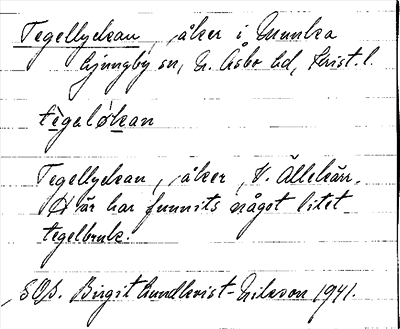 Tegellyckan, åker i Munka
Ljungby sn, N. Åsbo hd, Krist. l.
tègaløkan
Tegellyckan, åker, V. Ällekärr.
är har funnits något litet
tegelbruk.
SOB. Birgit Lundkvist-Nilsson 1941.